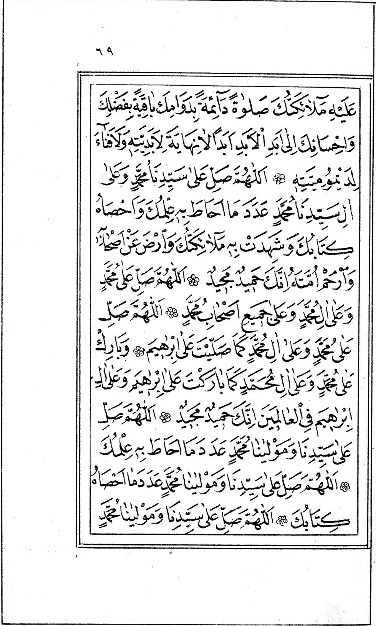 ٦٩
عَلَيْهِ مَلَائِكَتُكَ صَلٰوةً دَآئِمَةً بِدَوَامِكَ بَاقِيَةً بِفَضْلِكَ
وَاِحْسَانِكَ اِلٰى اَبَدِ الْاَبَدِ اَبَدًا لَانِهَايَةَ لِاَبَدِيَّتِهٖ وَلَافَنَآءَ
لِدَيْمُومِيَّتِهٖ ۞ اَللّٰهُمَّ صَلِّ عَلٰى سَيِّدِنَا مُحَمَّدٍ وَعَلٰى
اٰلِ سَيِّدِنَا مُحَمَّدٍ عَدَدَ مَا اَحَاطَ بِهٖ عِلْمُكَ وَاَحْصَاهُ
كِتَابُكَ وَشَهِدَتْ بِهٖ مَلَائِكَتُكَ وَارْضَ عَنْ اَصْحَابِهٖ
وَارْحَمْ اُمَّتَهٗ اِنَّكَ حَمِيدٌ مَجِيدٌ ۞ اَللّٰهُمَّ صَلِّ عَلٰى مُحَمَّدٍ
وَعَلٰى اٰلِ مُحَمَّدٍ وَعَلٰى جَمِيعِ اَصْحَابِ مُحَمَّدٍ ۞ اَللّٰهُمَّ صَلِّ
عَلٰى مُحَمَّدٍ وَعَلٰى اٰلِ مُحَمَّدٍ كَمَا صَلَّيْتَ عَلٰى اِبْرٰهِيمَ ۞ وَبَارِكْ
عَلٰى مُحَمَّدٍ وَعَلٰى اٰلِ مُحَمَّدٍ كَمَا بَارَكْتَ عَلٰى اِبْرٰهِيمَ وَعَلٰى اٰلِ
اِبْرٰهِيمَ فِى الْعَالَمِينَ اِنَّكَ حَمِيدٌ مَجِيدٌ ۞ اَللّٰهُمَّ صَلِّ
عَلٰى سَيِّدِنَا وَمَوْلٰينَا مُحَمَّدٍ عَدَدَ مَا اَحَاطَ بِهٖ عِلْمُكَ
۞ اَللّٰهُمَّ صَلِّ عَلٰى سَيِّدِنَا وَمَوْلٰينَا مُحَمَّدٍ عَدَدَ مَا اَحْصَاهُ
كِتَابُكَ ۞ اَللّٰهُمَّ صَلِّ عَلٰى سَيِّدِنَا وَمَوْلٰينَا مُحَمَّدٍ